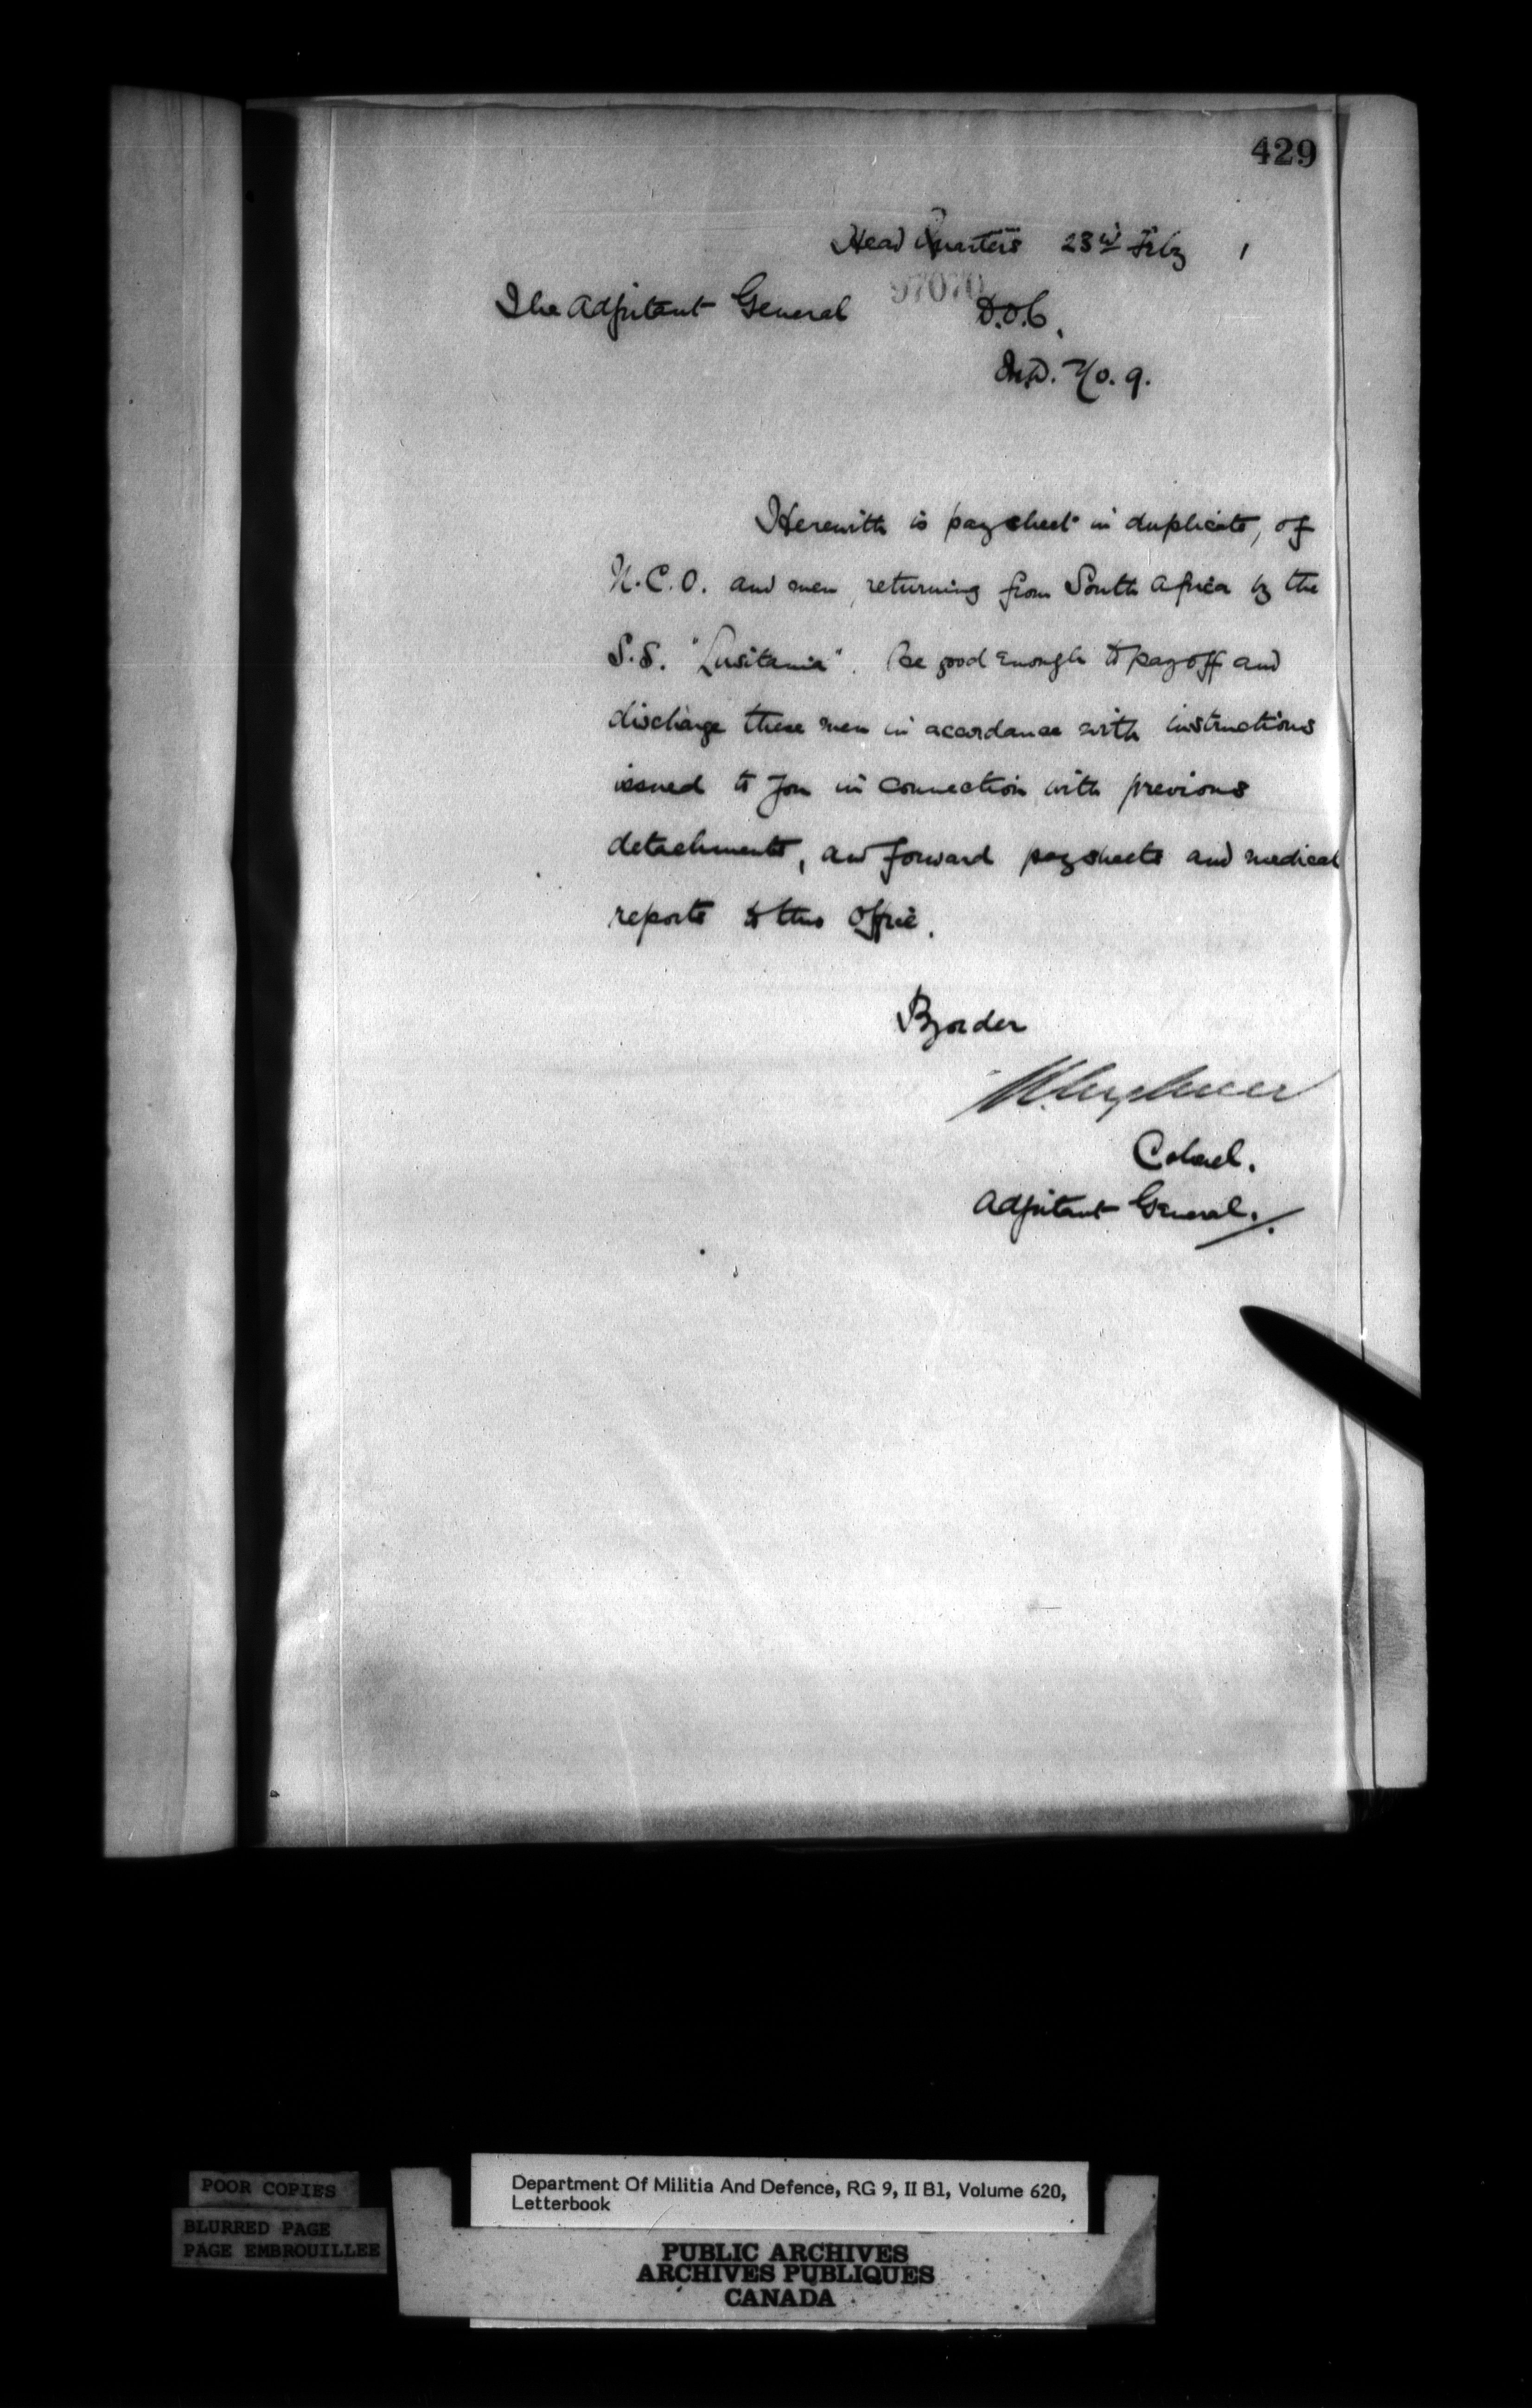 429
Head Quarters 23rd Feby 1
97070
The Adjutant General D.O.C.
M.D. No. 9.
Herewith is paysheet in duplicate, of
N.C.O. and men, returning from South Africa by the
S.S. "Lusitania". Be good enough to pay off and
discharge these men in accordance with instructions
issued to you in connection with previous
detachments, and forward paysheets and medical
reports to this Office.
By order
Colonel.
Adjutant General.
POOR COPIES
BLURRED PAGE
PAGE EMBROUILLEE
Department Of Militia And Defence, RG 9, II B1, Volume 620,
Letterbook
PUBLIC ARCHIVES
ARCHIVES PUBLIQUES
CANADA